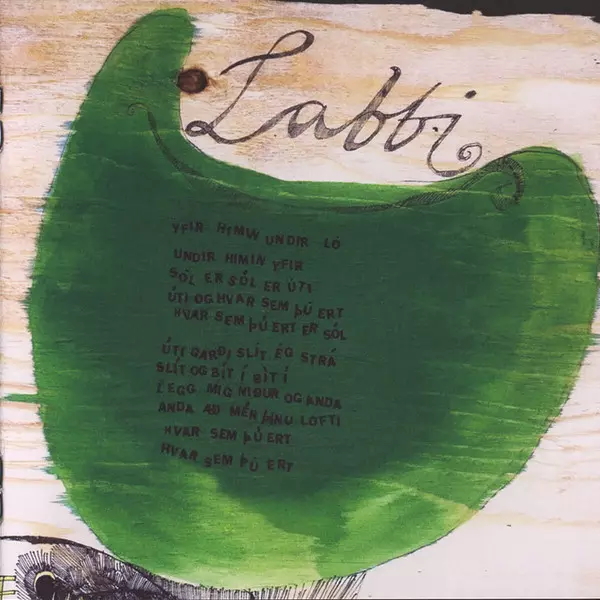 Labbi
YFIR HIMIN UNDIR LÓ
UNDIR HIMIN YFIR
SÓL ER SÓL ER ÚTI
ÚTI OG HVAR SEM ÞÚ ERT
HVAR SEM ÞÚ ERT ER SÓL
ÚTI GARÐI SLÍT ÉG STRÁ
SLÍT OG BÍT Í BÍT Í
LEGG MIG NIÐUR OG ANDA
ANDA AÐ MÉR ÞÍNU LOFTI
HVAR SEM ÞÚ ERT
HVAR SEM ÞÚ ERT